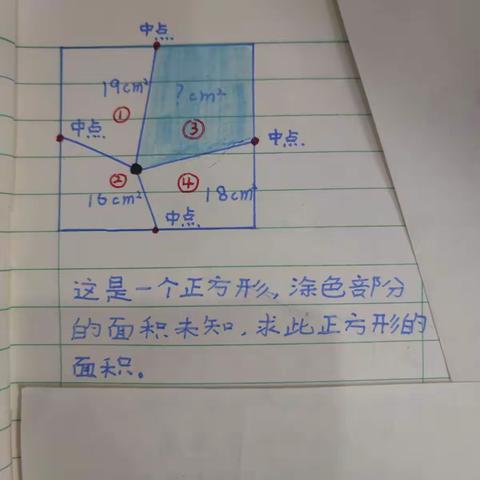 中点
19cm²
?cm²
①
③
中点
中点
②
④
16cm²
18cm²
中点
这是一个正方形,涂色部分
的面积未知,求此正方形的
面积。